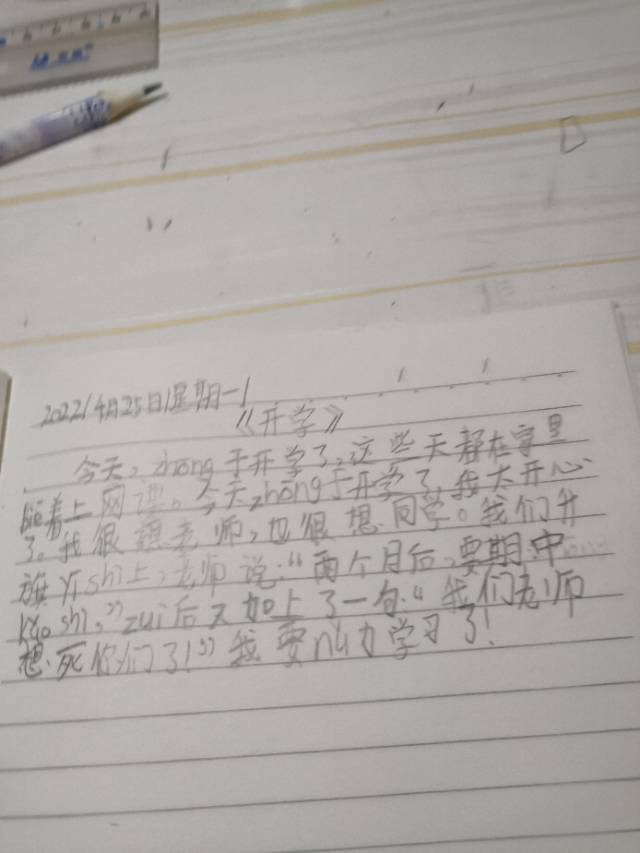 2022/4月25日/星期一/
《开学》
今天，zhōng于开学了，这些天都在家里
着上网课。今天zhōng于开学了，我太开心
了。我很想老师，也很想同学。我们升
旗yí shì上，老师说：“两个月后，要期中
kǎo shì。”zuì后又加上了一句：“我们老师
想死你们了！”我要nǔ力学习了！